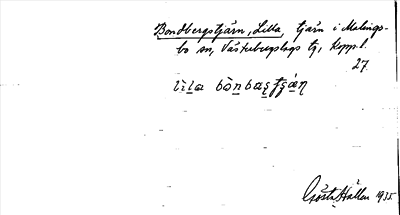 Bondbergstjärn, Lilla, tjärn i Malings-
bo sn, Västerbergslags tg, Kopp. l.
27.
Gösta Hallén 1935.